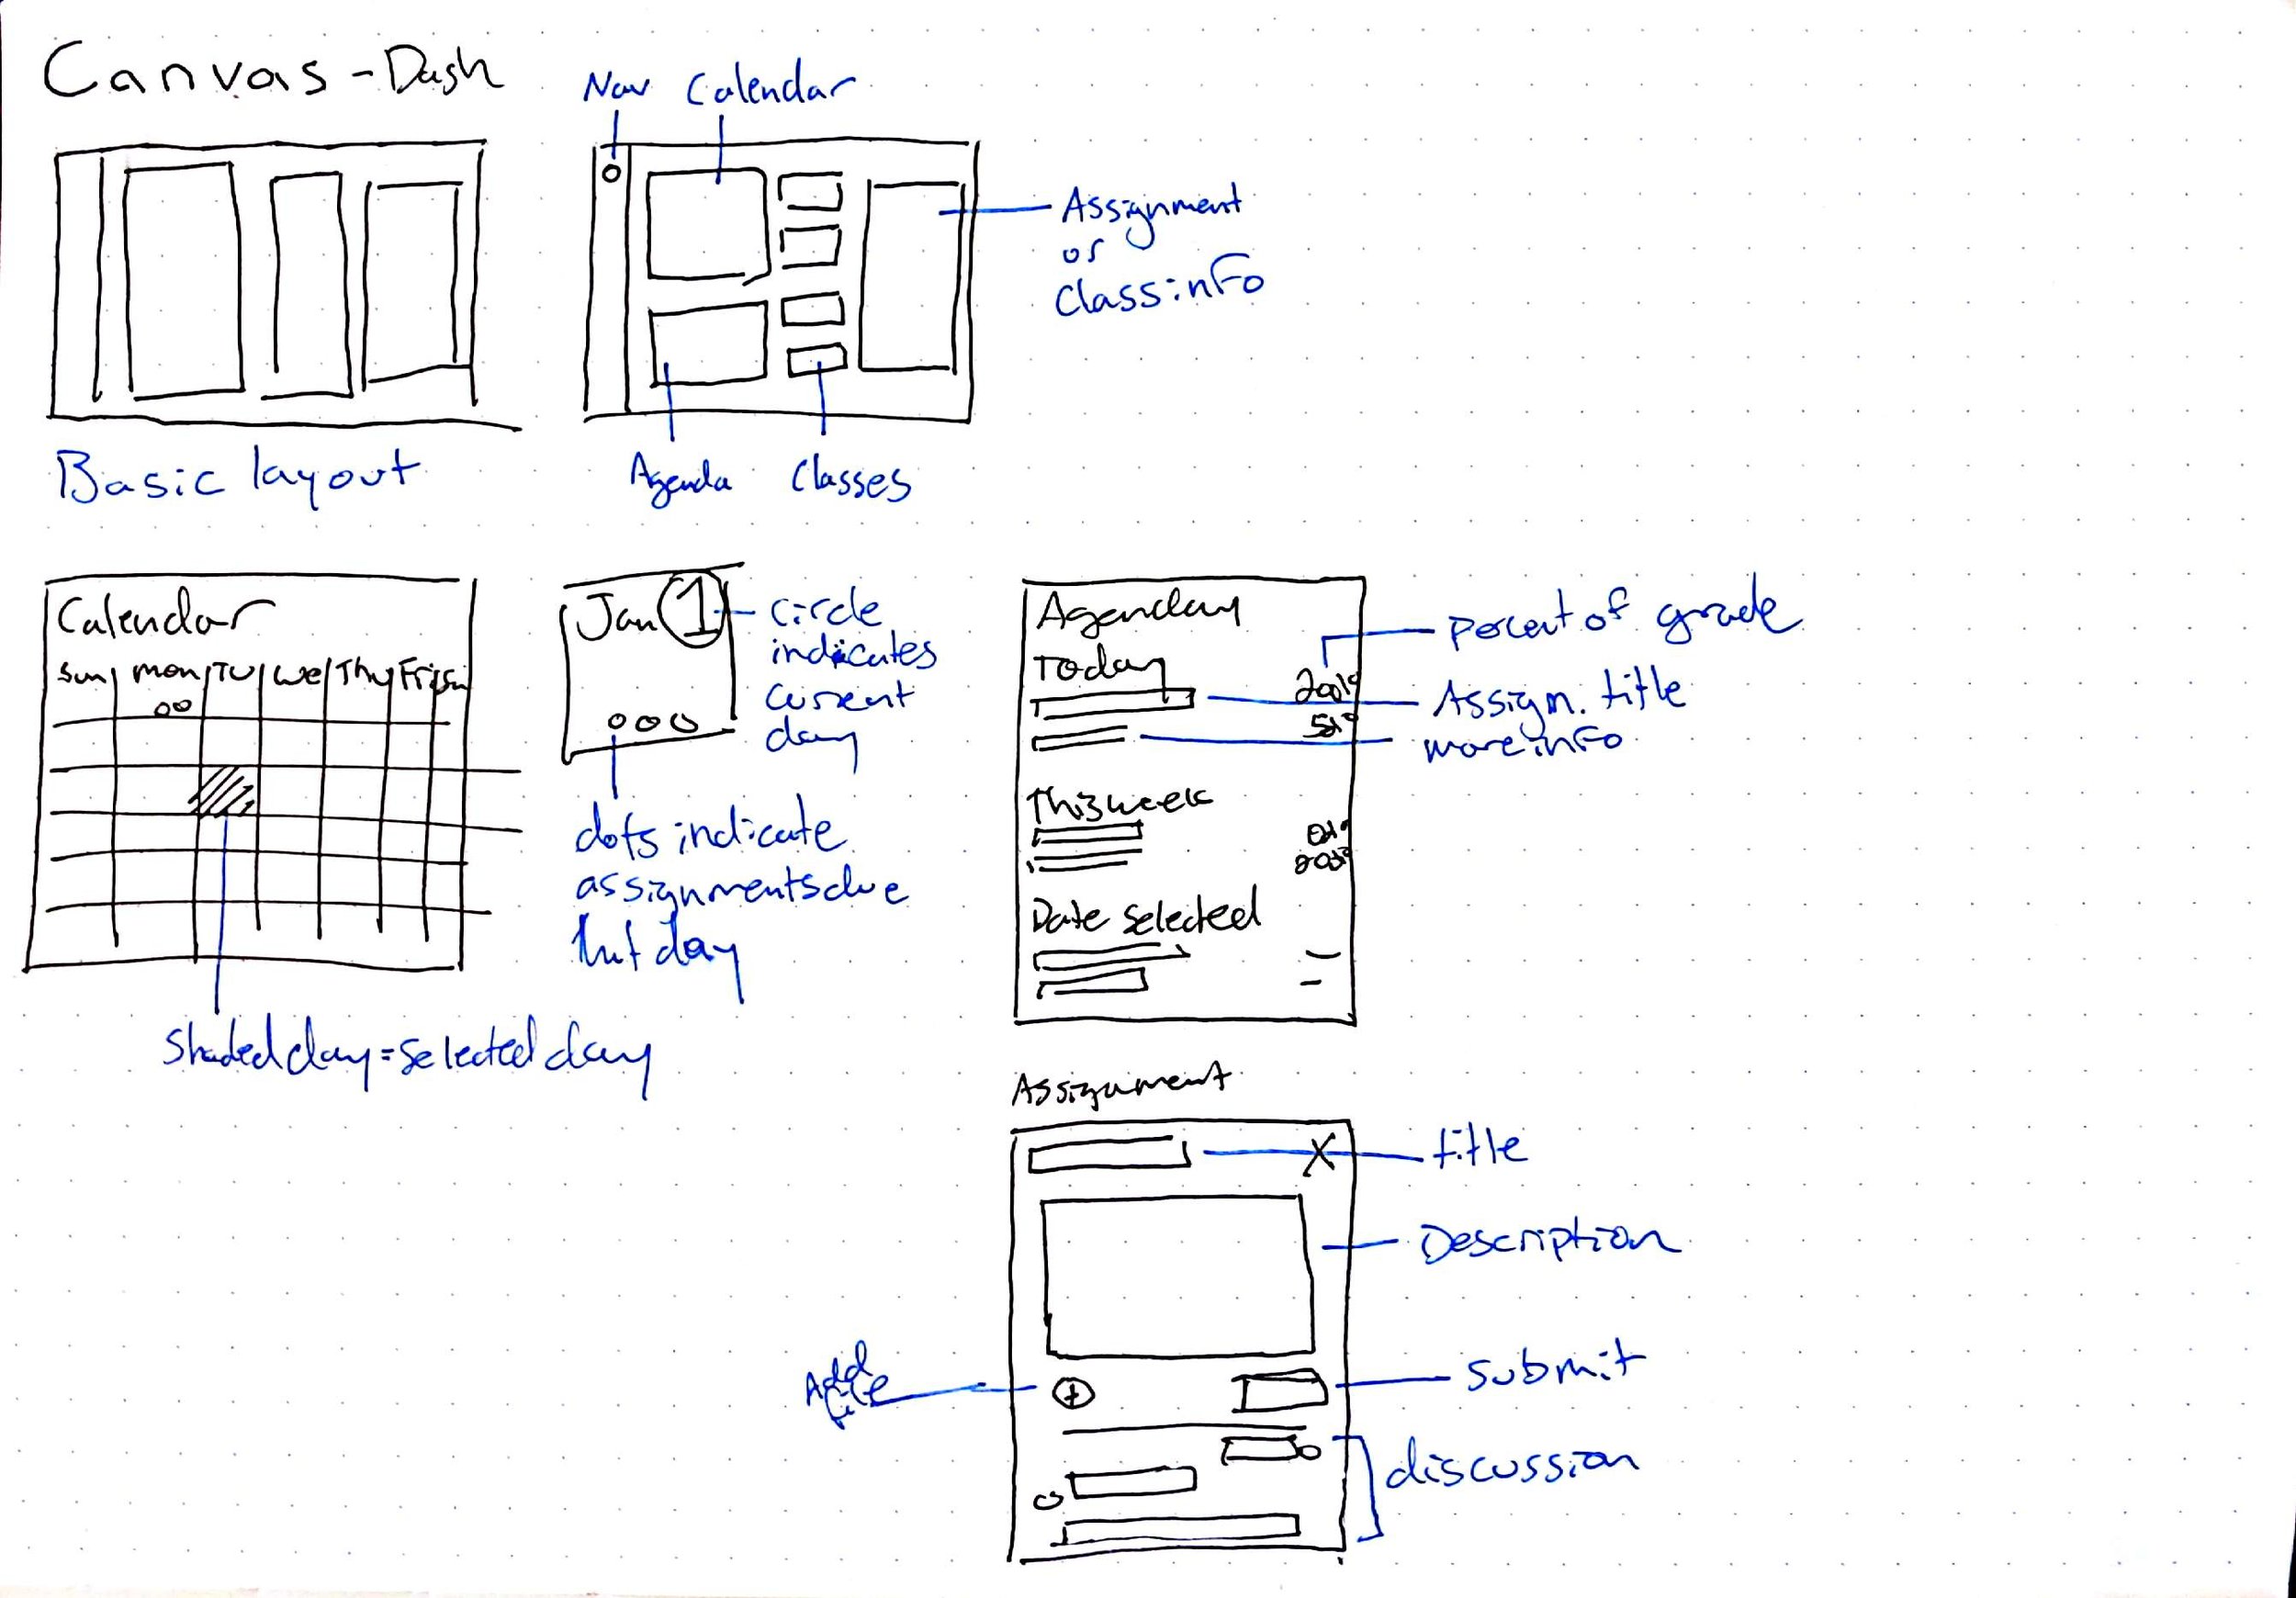 Canvas - Dash
Nav Calendar
Assignment
or
Class info
Basic layout
Agenda Classes
Calendar
Sun mon TU We Thu Fri
Jan 1
circle
indicates
current
day
dots indicate
assignments due
that day
Shaded day = selected day
Agenday
Today
20%
5%
Percent of grade
Assign. title
more info
This week
0%
Date selected
Assignment
X
title
Description
Add
file
+
submit
discussion